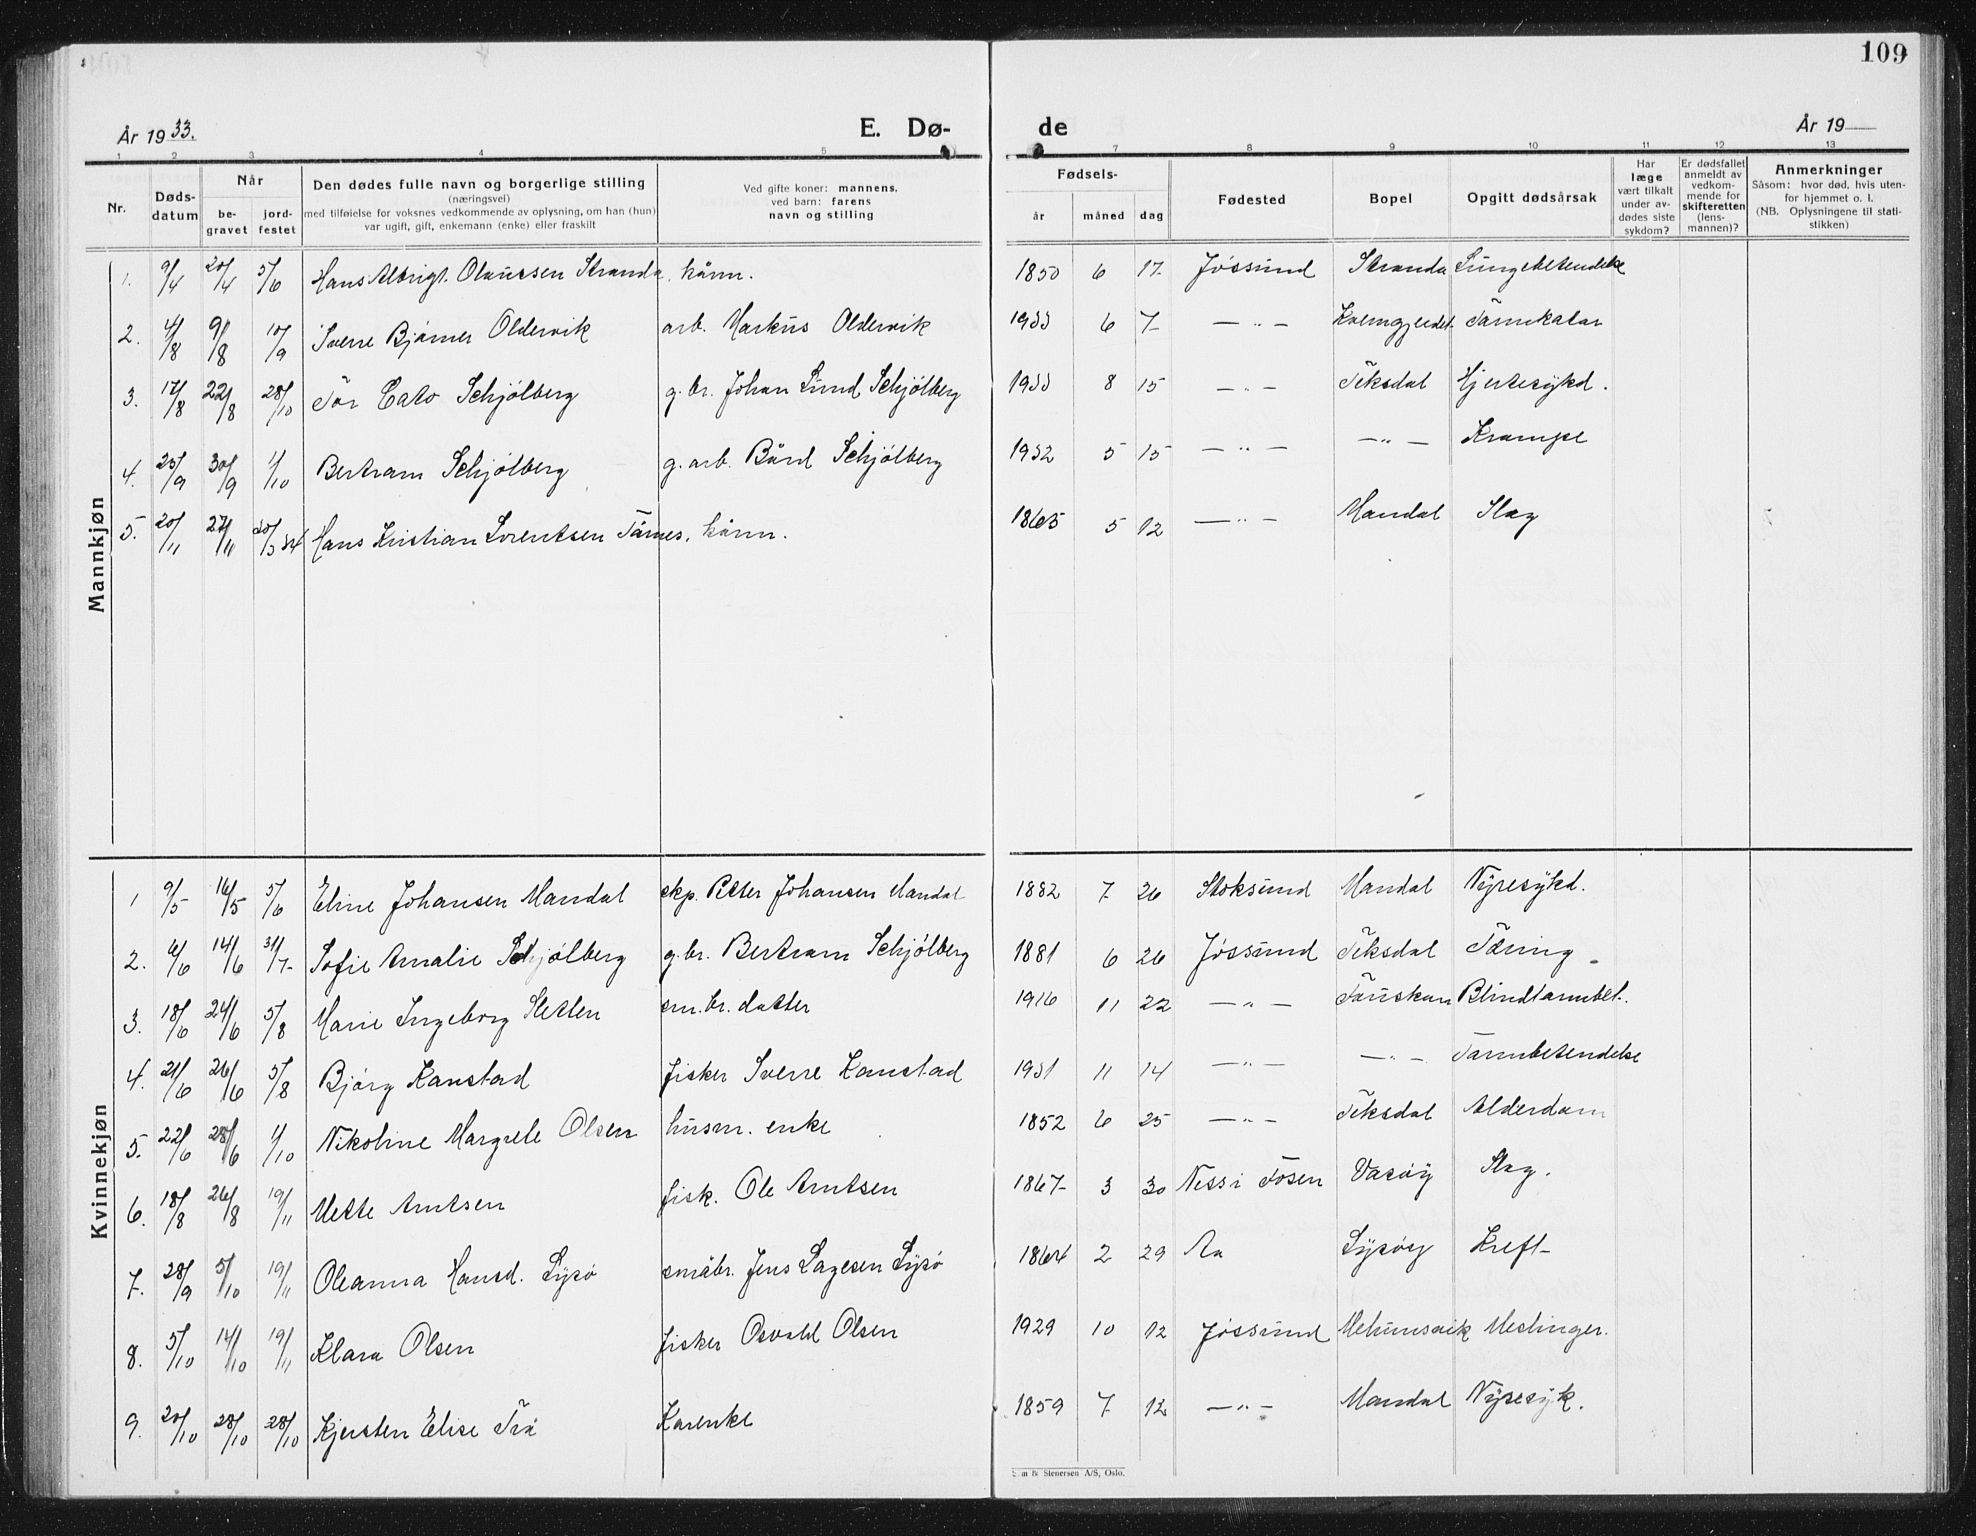 109
År 1933. E. Dø- de År 19
1 2 3 4 5 7 8 9 10 11 12 13
Nr. Døds-datum Når be-gravet jord-festet Den dødes fulle navn og borgerlige stilling (næringsvei) med tilføielse for voksnes vedkommende av oplysning, om han (hun) var ugift, gift, enkemann (enke) eller fraskilt Ved gifte koner: mannens, ved barn: farens navn og stilling Fødsels- år måned dag Fødested Bopel Opgitt dødsårsak Har læge vært tilkalt under av-dødes siste sykdom? Er dødsfallet anmeldt av vedkom-mende for skifteretten (lens-mannen)? Anmerkninger Såsom: hvor død, hvis uten-for hjemmet o. l. (NB. Oplysningene til stati-stikken)
Mannkjøn
1. 9/4 20/4 5/6 Hans Albrigt. Olaussen Stranda, kårm. 1850 6 17 Jøssund Stranda Lungebetendelse
2. 4/8 9/8 10/9 Sverre Bjarner Oldervik arb. Markus Oldervik 1933 6 7 — " — Kvemgjerdet Tarmkatar
3. 17/8 22/8 28/10 Tor Cato Schjølberg g.br. Johan Lund Schjølberg 1933 8 15 — " — Teksdal Hjertesykd.
4. 25/9 30/9 1/10 Bertram Schjølberg g.arb. Bård Schjølberg 1932 5 15 — " — — " — Krampe
5. 20/11 27/11 20/3 34 Hans Kristian Lorentsen Tårnes, kårm. 1865 5 12 — " — Mandal Slag
Kvinnekjøn
1 9/5 16/5 5/6 Eline Johansen Mandal skp. Peter Johansen Mandal 1882 7 26 Stoksund Mandal Nyresykd.
2. 6/6 14/6 31/7 Sofie Amalie Schjølberg g.br. Bertram Schjølberg 1881 6 26 Jøssund Teksdal Tæring
3. 18/6 24/6 5/8 Marie Ingeborg Sletten sm.br. datter 1916 11 22 — " — Tauskan Blindtarmbet.
4. 21/6 26/6 5/8 Bjørg Kanstad fisker Sverre Kanstad 1931 11 14 — " — — " — Tarmbetendelse
5. 22/6 28/6 1/10 Nikoline Margrete Olsen husm. enke 1852 6 25 — " — Teksdal Alderdom
6. 18/8 26/8 19/11 Mette Arntsen fisk. Ole Arntsen 1867 3 30 Ness i Fosen Vasøy Slag.
7. 28/9 5/10 19/11 Oleanna Hansd. Lysø småbr. Jens Lagesen Lysø 1864 2 29 Aa Lysøy Kreft
8. 5/10 14/10 19/11 Klara Olsen fisker Osvald Olsen 1929 10 12 Jøssund Mehumsvik Meslinger.
9. 20/10 28/10 28/10 Kjersten Elise Trå Kårenke 1859 7 12 — " — Mandal Nyresyk.
m & Stenersen A/S, Oslo.